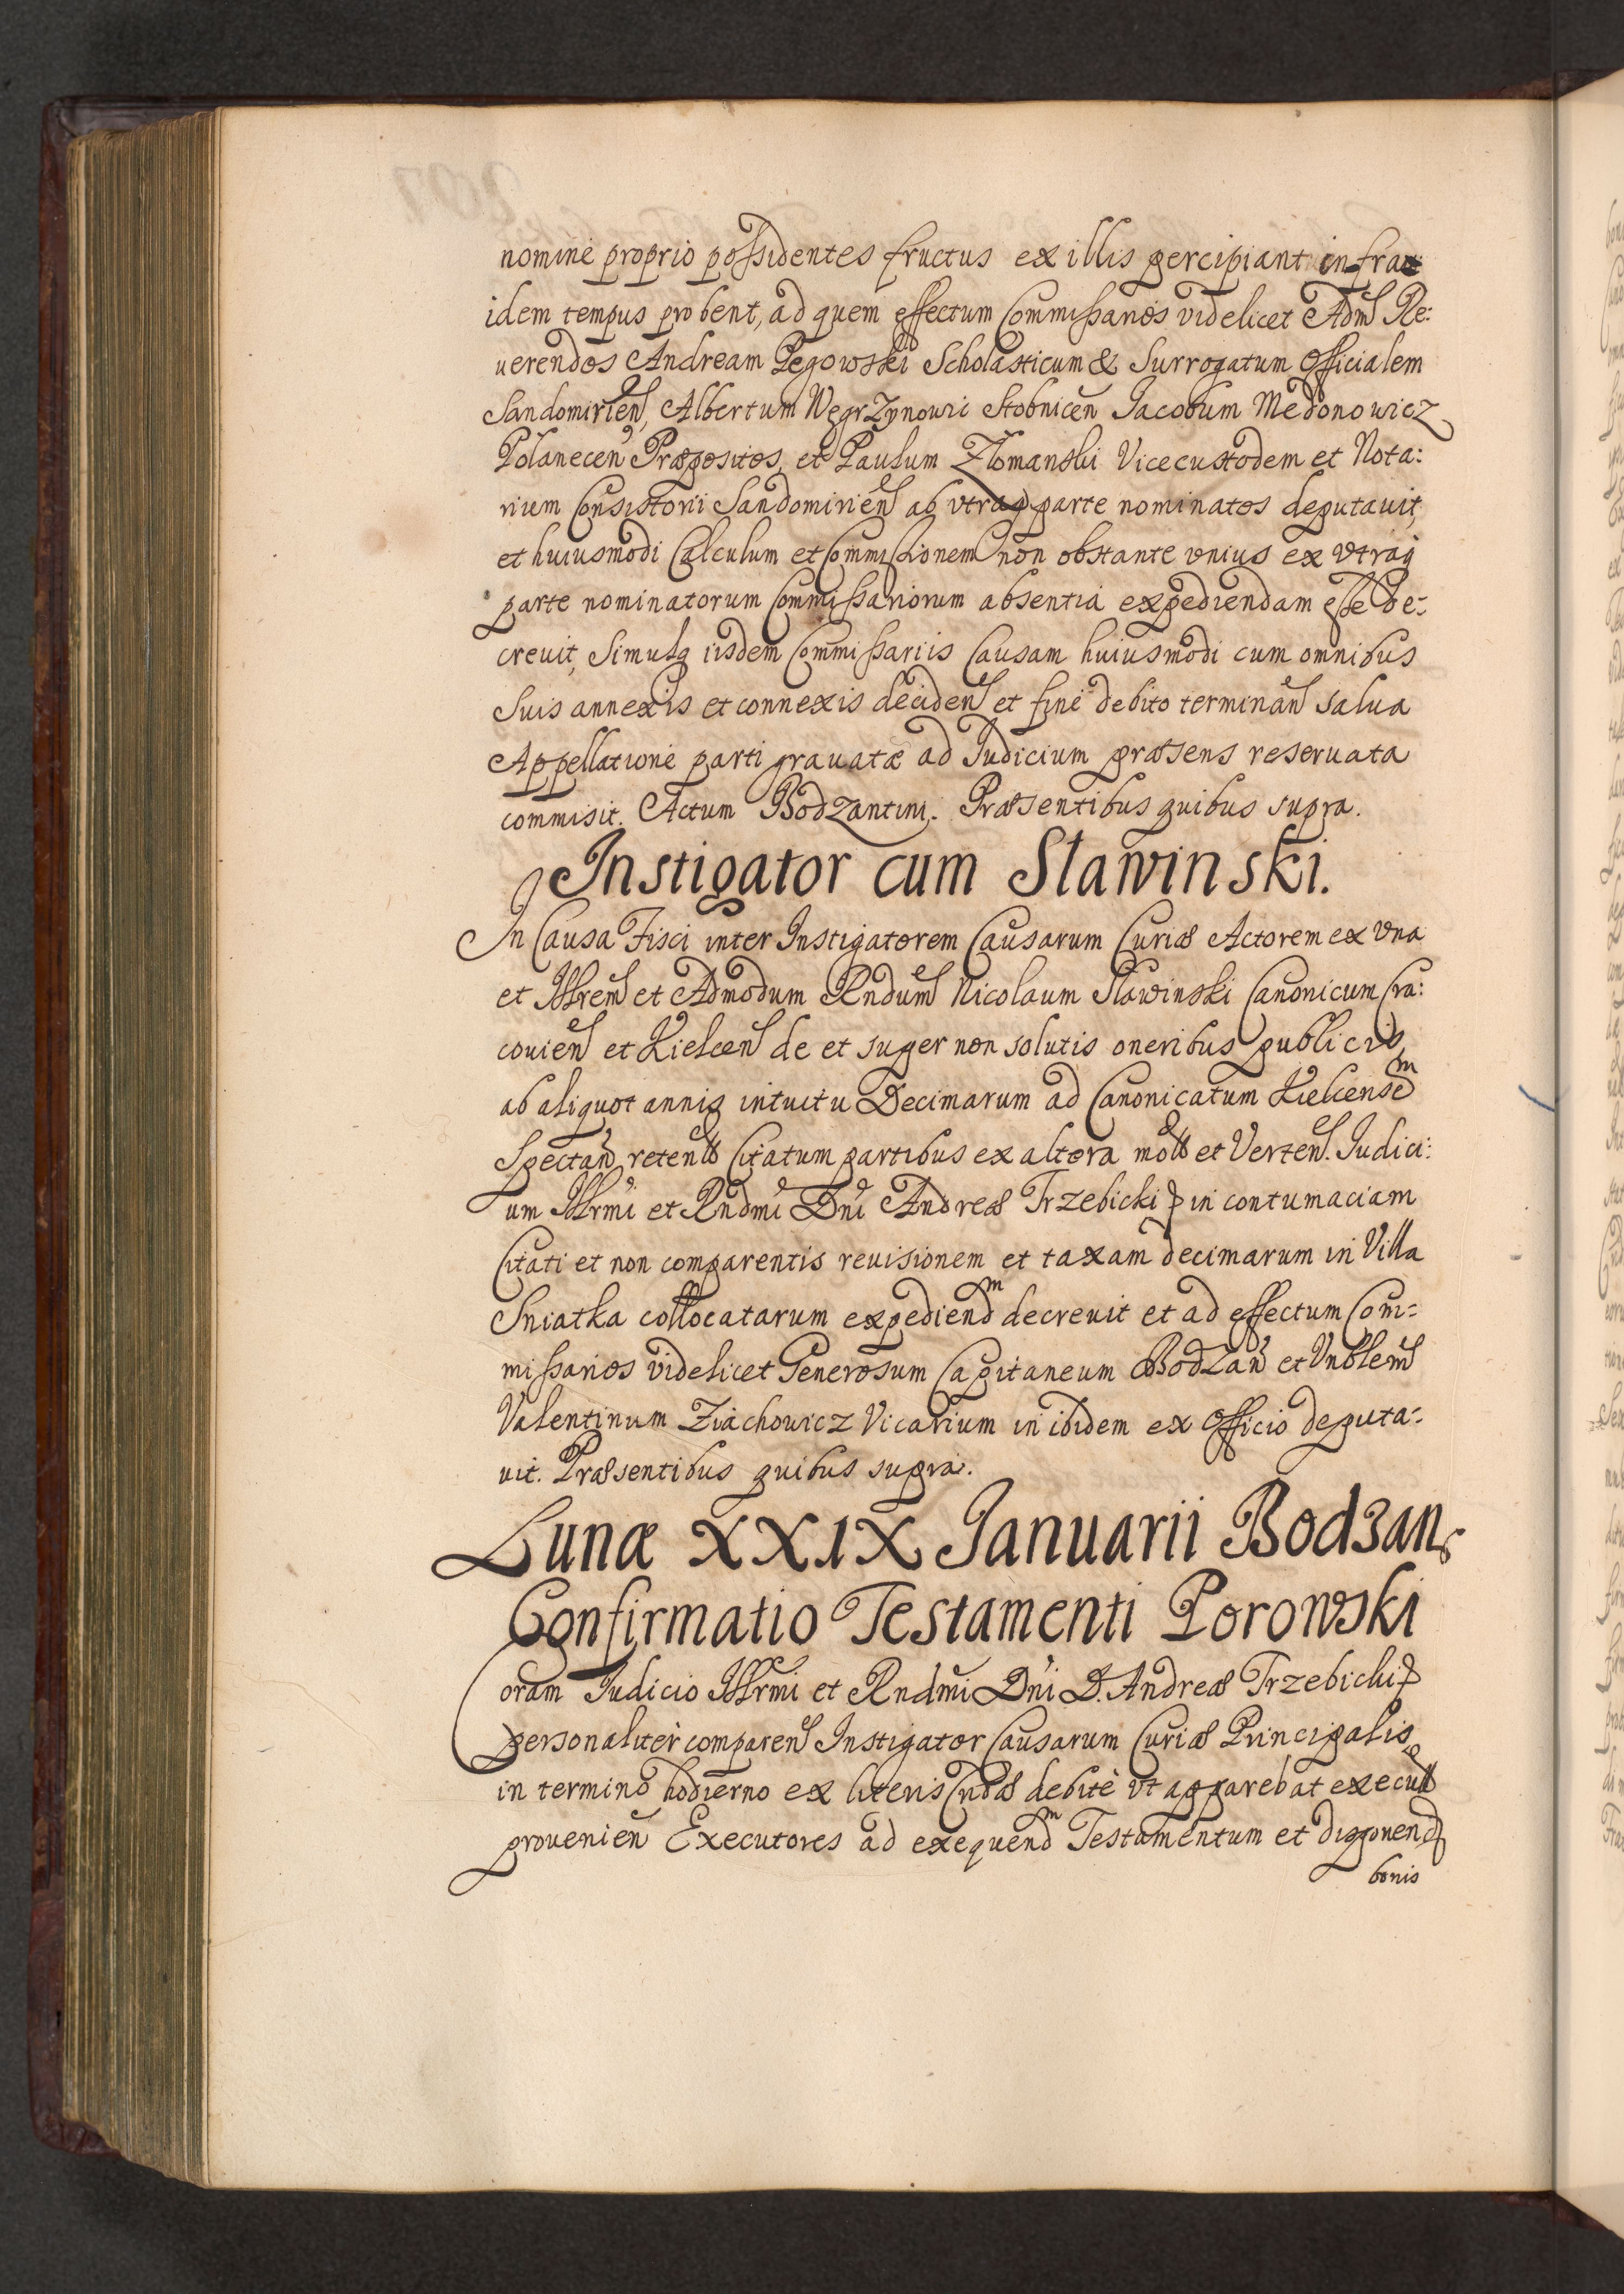 nominè proprio possidentes fructus ex illis percipiant infra
idem tempus probent, ad quem effectum Commissarios videlicet Adm Re:
uerendos Andream Pegowski Scholasticum & Surrogatum Officialem
Sandomirien, Albertum Węgrzynowic Stobnicen Jacobum Medonowicz
Polanecen Præpositos, et Paulum Złomanski Vicecustodem et Nota:
rium Consistorii Sandomirien ab vtraq parte nominatos deputauit,
et huiusmodi Calculum et Commissionem non obstante vnius ex vtraq
parte nominatorum Commissariorum absentia expediendam esse de:
creuit, Simulq iisdem Commissariis Causam huiusmodi cum omnibus
Suis annexis et connexis deciden et finè debito terminan salua
Appellationè parti grauatæ ad Iudicium præsens reseruata
commisit. Actum Bodzantini. Præsentibus quibus supra.
Instigator cum Sławinski.
In Causa Fisci inter Instigatorem Causarum Curiæ Actorem ex vna
et Illrem et Admodum Rndum Nicolaum Sławinski Canonicum Cra:
couien et Kielcen de et super non solutis oneribus publicis,
ab aliquot annis intuitu Decimarum ad Canonicatum Kielcensem
Spectan reten Citatum partibus ex altera mo et Verten. Iudici:
um Illrmi et Rndmi Dni Andreæ Trzebicki in contumaciam
Citati et non comparentis reuisionem et taxam decimarum in Villa
Sniatka collocatarum expediendm decreuit et ad effectum Com=
missarios videlicet Generosum Capitaneum Bodzan et Vnblem
Valentinum Ziachowicz Vicarium in ibidem ex Officio deputa:
uit. Præsentibus quibus supra.
Lunæ XXIX Ianuarii Bodzan,
Confirmatio Testamenti Porowski
Coram Iudicio Illrmi et Rndmi Dni D. Andreæ Trzebicki
personalitèr comparen Instigator Causarum Curiæ Principalis
in termino hodierno ex literis Cndæ debitè vt apparebat execu
prouenien Executores ad exequendm Testamentum et disponend
bonis